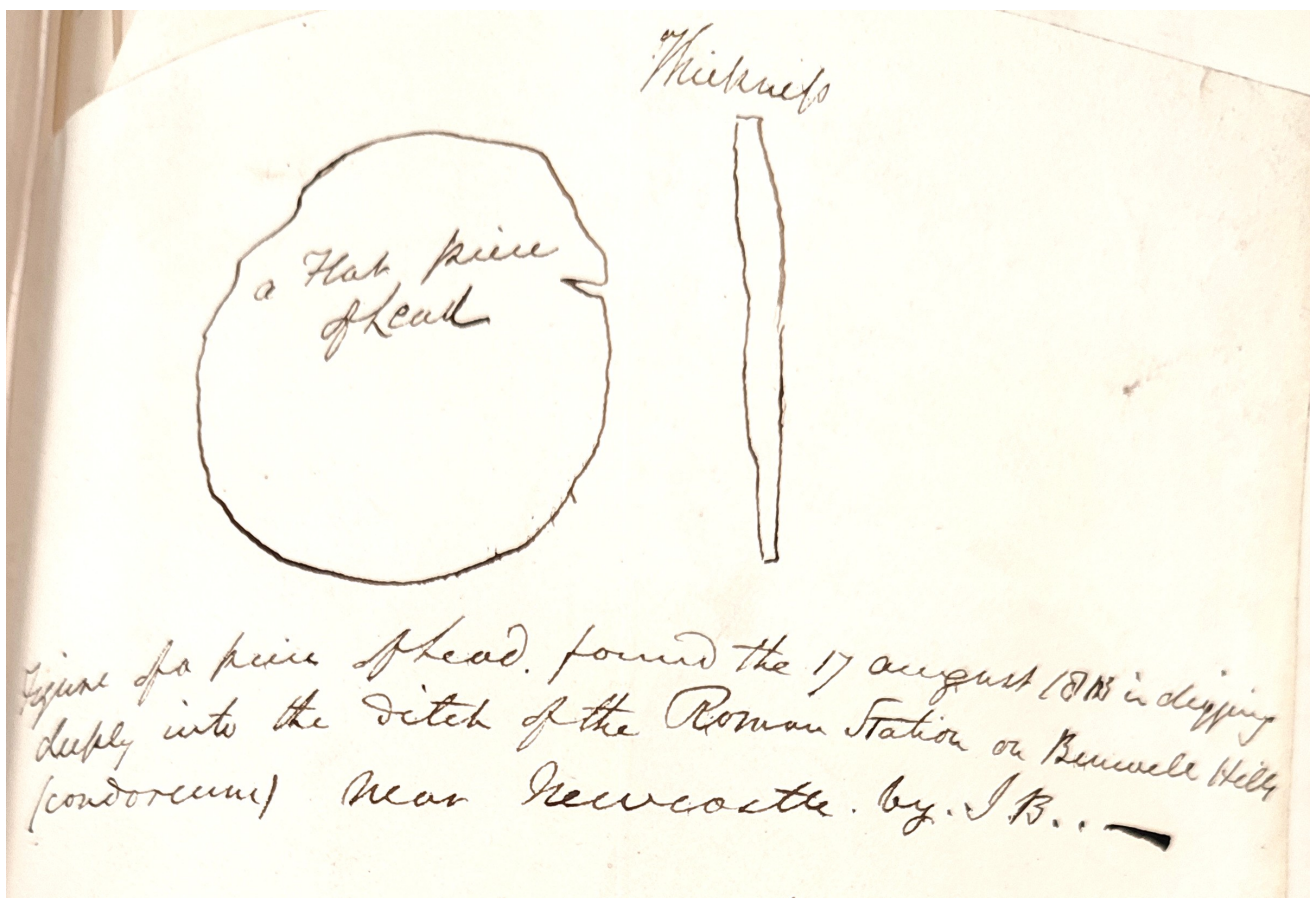 Thickness
a Flat piece
of Lead
Figure of a piece of Lead. found the 17 august 1813 in digging
deeply into the Ditch of the Roman Station on Benwell Hills
(condorcum) near Newcastle. by. J B. . —